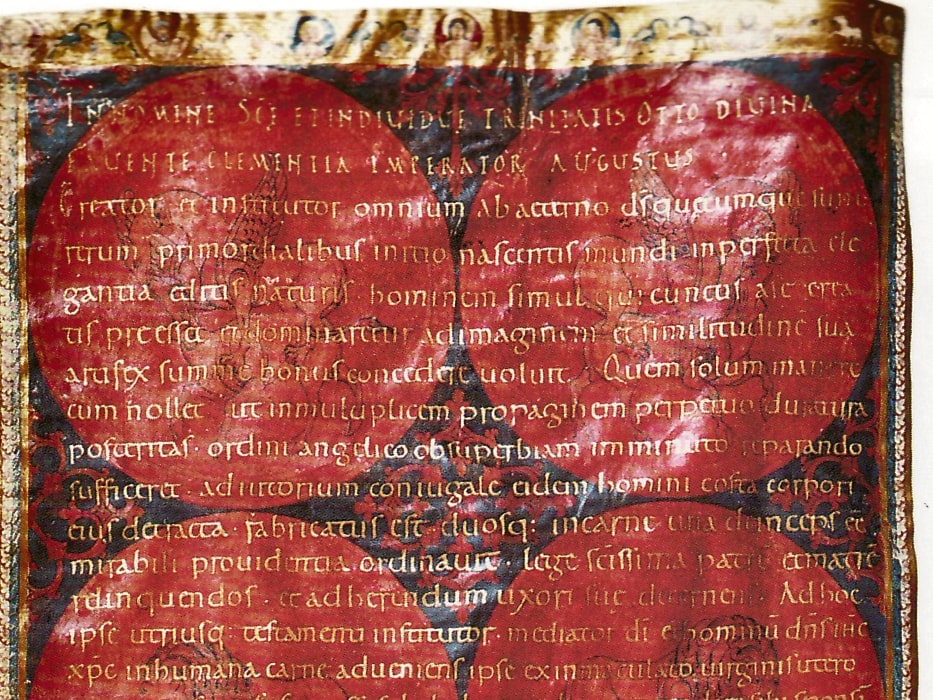 IN NOMINE SCE ET INDIVIDUE TRINITATIS OTTO DIVINA
FAUENTE CLEMENTIA IMPERATOR AUGUSTUS
Creator et institutor omnium ab aeterno ds quecumque sunt
rerum primordialibus initio nascentis mundi inperfecta ele
gantia editis naturis hominem simul qui cunctis a se crea
tis preesset et dominaretur ad imaginem et similitudinē sua
artifex summe bonus concedere uoluit. Quem solum manere
cum nollet ut in multiplicem propaginem perpetuo duratura
posteritas · ordini angelico ob superbiam imminuto reparando
sufficeret · adiutorium coniugale eidem homini costa corpori
eius detracta · fabricatus est · duosq; in carne una deinceps eē
mirabili prouidentia ordinauit · lege scissima patrē et matrē
relinquendos · et adherendum uxori suę decernens · Ad hoc
ipse utriusq; testamenti institutor · mediator di et hominū dns ihc
xpc in humana carne adueniens ipse ex inmaculato uirginis utero